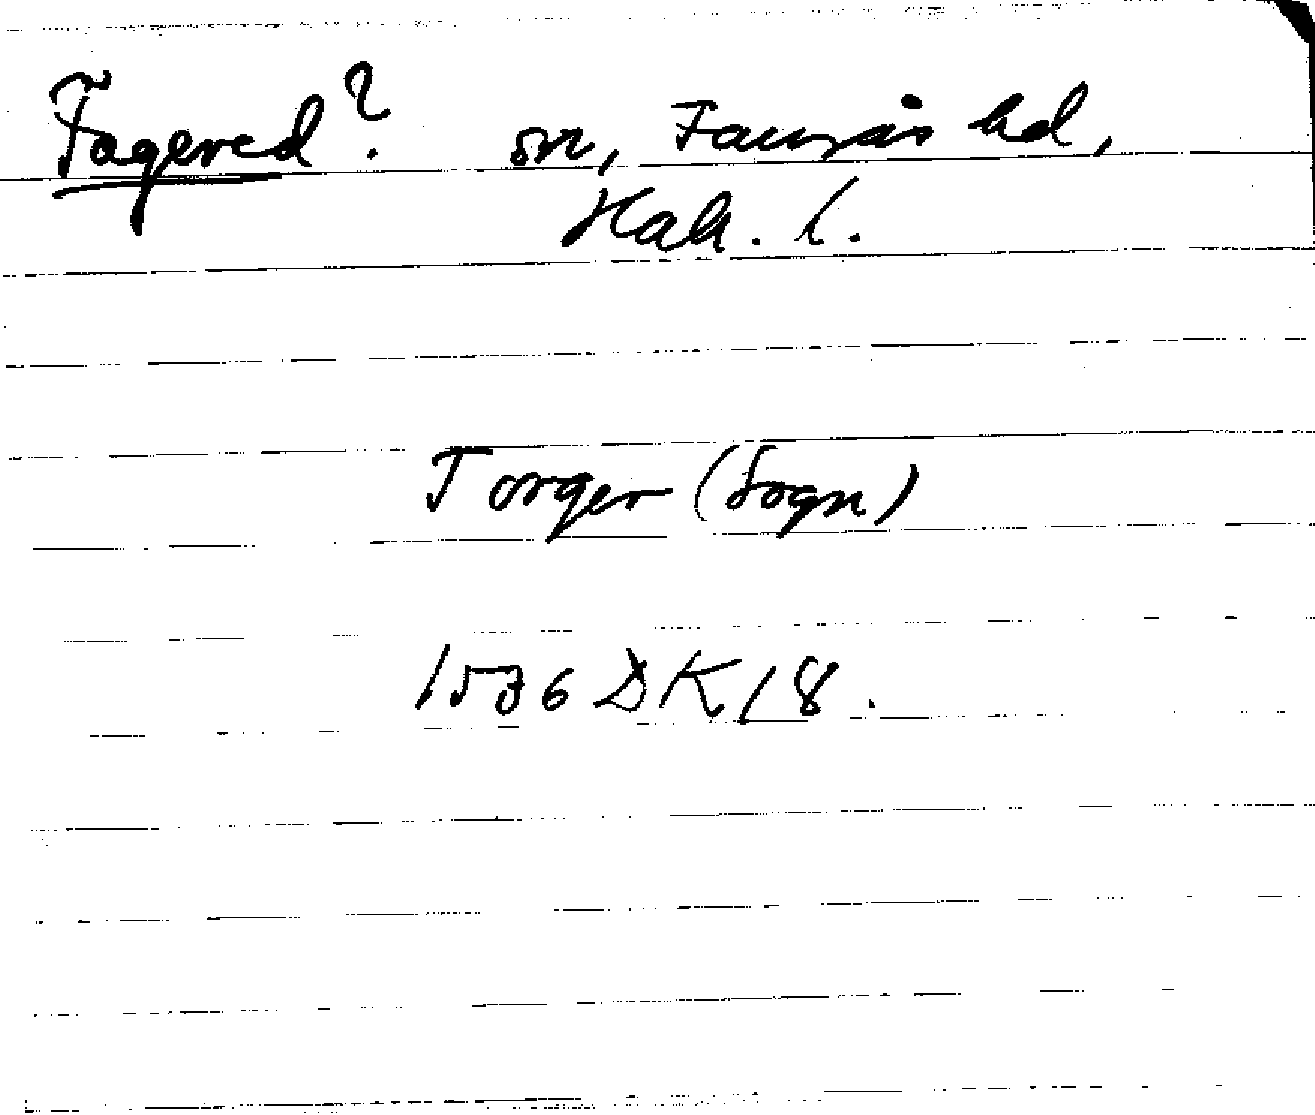 Fagered? sn, Faurås hd,
Hall. l.
Torger (Sogn)
1536 DK 18.